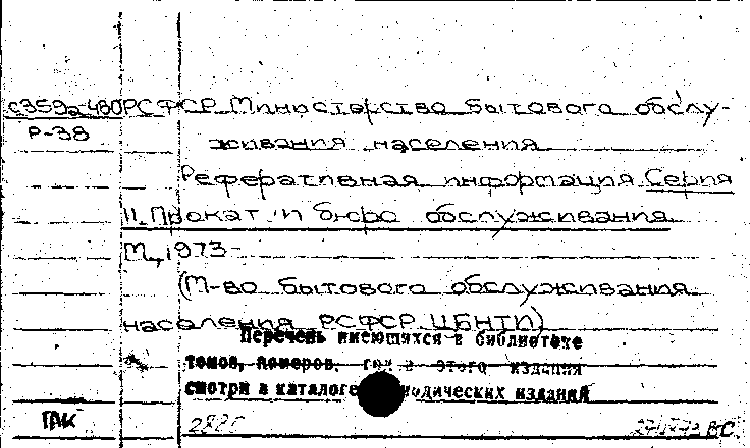 с359а-480 РСФСР. Министерство бытового обслу-
Р-38
живания населения.
Реферативная информация. Серия
II. Прокат и бюро обслуживания
М., 1973-
(М-во бытового обслуживания
населения РСФСР. ЦБНТИ)
Перечень имеющихся в библиотеке
томов, номеров, год а этого издания
смотри в каталоге периодических изданий
ГАК